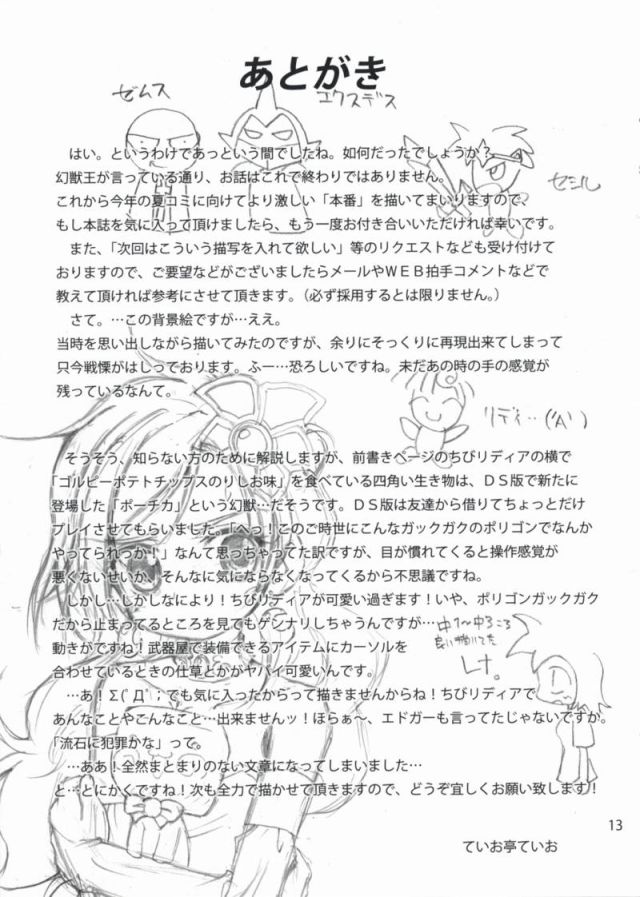 あとがき
ゼムス
エクスデス
はい。というわけであっという間でしたね。如何だったでしょうか？
幻獣王が言っている通り、お話はこれで終わりではありません。
セシル
これから今年の夏コミに向けてより激しい「本番」を描いてまいりますので、
もし本誌を気に入って頂けましたら、もう一度お付き合いいただければ幸いです。
また、「次回はこういう描写を入れて欲しい」等のリクエストなども受け付けて
おりますので、ご要望などがございましたらメールやＷＥＢ拍手コメントなどで
教えて頂ければ参考にさせて頂きます。（必ず採用するとは限りません。）
さて。…この背景絵ですが…ええ。
当時を思い出しながら描いてみたのですが、余りにそっくりに再現出来てしまって
只今戦慄がはしっております。ふー…恐ろしいですね。未だあの時の手の感覚が
残っているなんて。
リディ‥('A`)
そうそう、知らない方のために解説しますが、前書きページのちびリディアの横で
「ゴルビーポテトチップスのりしお味」を食べている四角い生き物は、ＤＳ版で新たに
登場した「ポーチカ」という幻獣…だそうです。ＤＳ版は友達から借りてちょっとだけ
プレイさせてもらいました。「へっ！このご時世にこんなガックガクのポリゴンでなんか
やってられっか！」なんて思っちゃってた訳ですが、目が慣れてくると操作感覚が
悪くないせいか、そんなに気にならなくなってくるから不思議ですね。
しかし…しかしなにより！ちびリディアが可愛い過ぎます！いや、ポリゴンガックガク
だから止まってるところを見てもゲンナリしちゃうんですが…
中1〜中3ころ
良く描いてた
動きがですね！武器屋で装備できるアイテムにカーソルを
合わせているときの仕草とかがヤバイ可愛いんです。
レナ。
…あ！Σ(ﾟДﾟ；でも気に入ったからって描きませんからね！ちびリディアで
あんなことやこんなこと…出来ませんッ！ほらぁ〜、エドガーも言ってたじゃないですか。
「流石に犯罪かな」って。
…ああ！全然まとまりのない文章になってしまいました…
と…とにかくですね！次も全力で描かせて頂きますので、どうぞ宜しくお願い致します！
13
ていお亭ていお